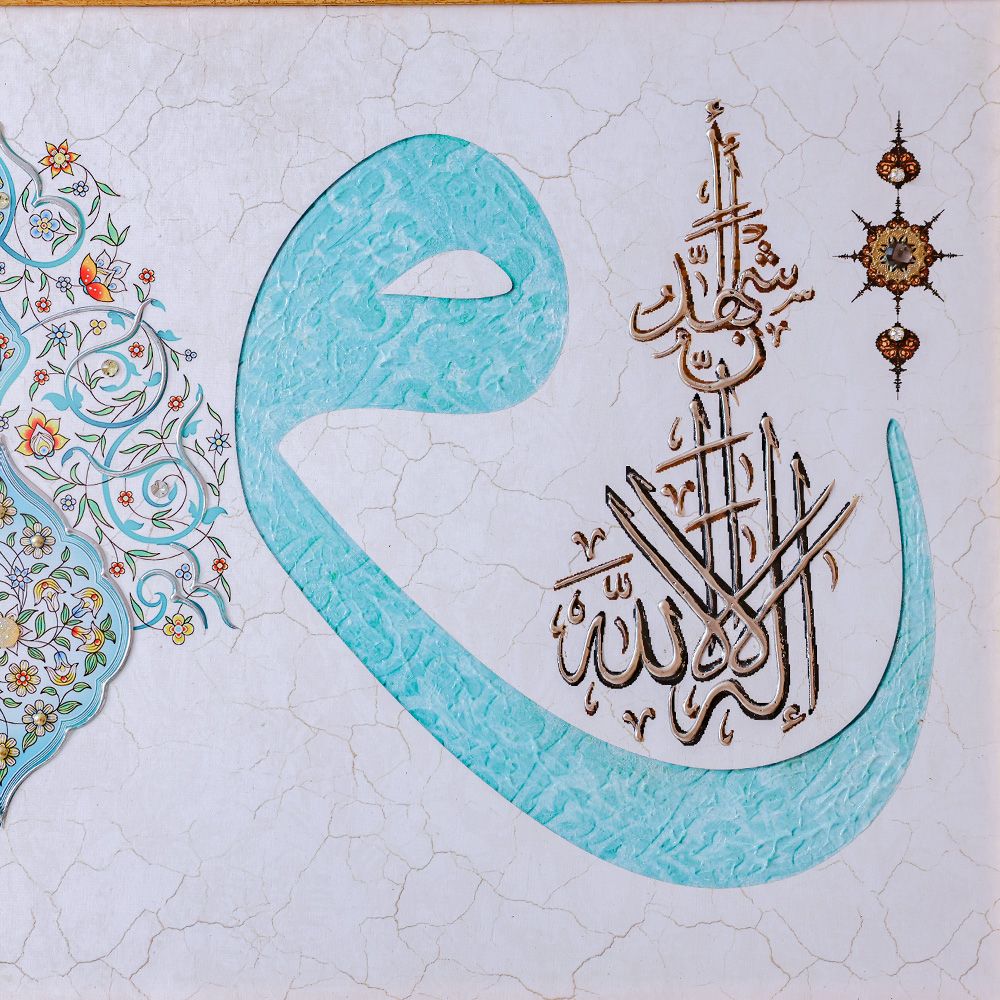 أشهد أن
لا إله إلا الله